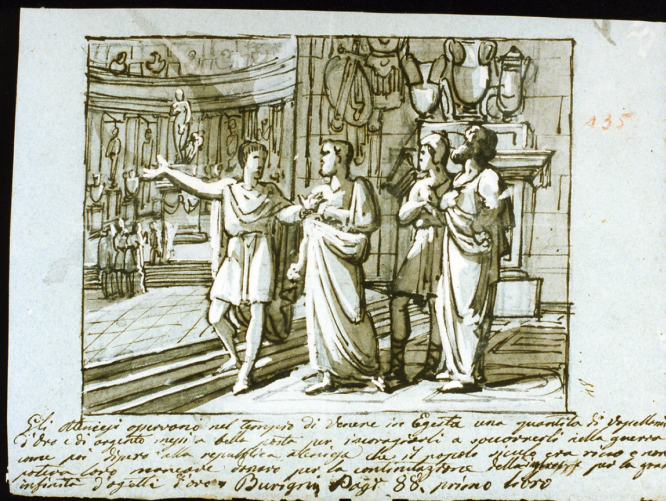 135
Gli Ateniesi osservano nel tempio di Venere in Egesta una quantità di
d'oro e di argento messi a bella posta per incoragirli a soccorrerli nella guerra
poi dissero alla repubblica ateniese che il popolo siculo era ricco e non
poteva loro mancare denaro per la continuazione della per la gran
infinità d'ogetti d'oro Burigni Pagª 88. primo libro